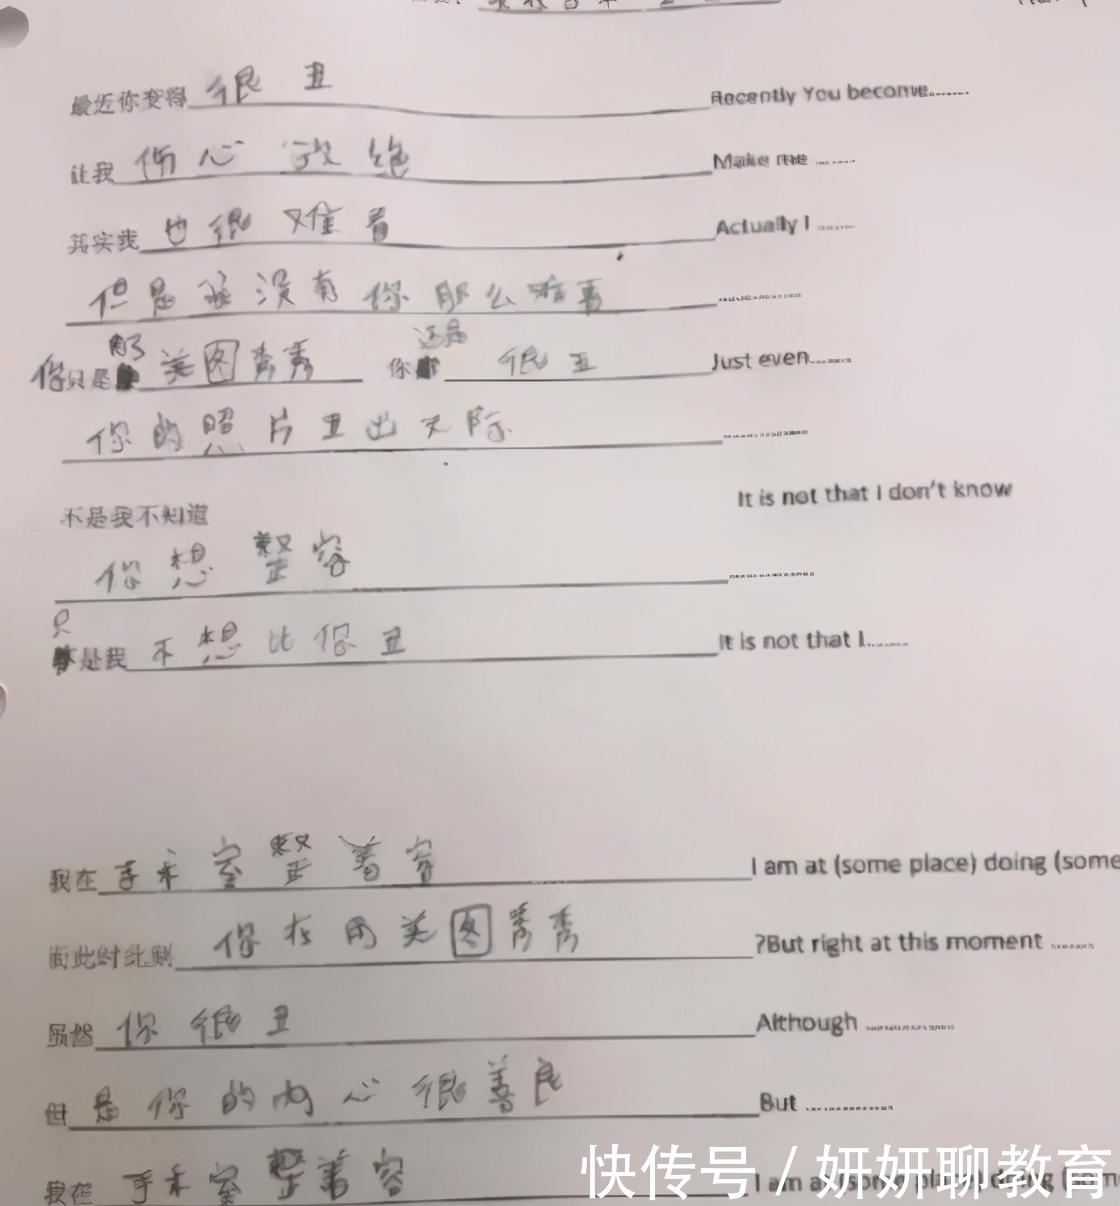 最近你变得 很丑 Recently You become........
让我 伤心 绝 Make me
其实我 也很难看 Actually I
但是 没有你那么难看
你只是 美图秀秀 你还是 很丑 Just even
你的照片丑出天际
不是我不知道 It is not that I don't know
你想整容
只是我 不想比你丑 It is not that I
我在 手术室整着容 I am at (some place) doing (some
而此时此刻 你在用美图秀秀 ?But right at this moment
虽然 你很丑 Although
但是你的内心很善良 But
我在 手术室整着容 I am at (some place) doing (some
快传号 / 妍妍聊教育